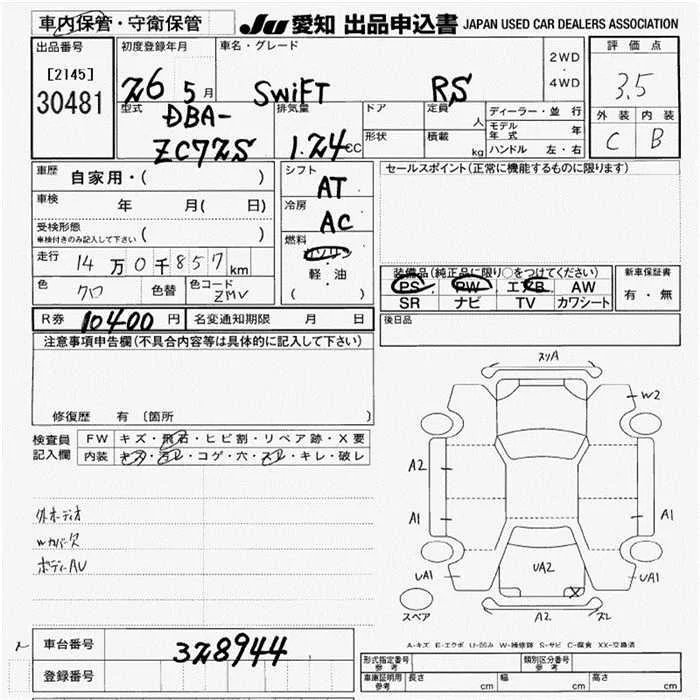 車内保管・守衛保管
JU 愛知 出品申込書 JAPAN USED CAR DEALERS ASSOCIATION
出品番号
[2145]
30481
初度登録年月
26 5 月
車名・グレード
SWiFT RS
2WD
・
4WD
評価点
3.5
外装 内装
C B
型式
DBA-
ZC72S
排気量
1.24 CC
ドア
形状
定員
人
積載
kg
ディーラー・並行
モデル年式 年
ハンドル 左・右
車歴
自家用・( )
車検
年 月( 日)
受検形態
車検付きのみ記入して下さい ( )
走行
14 万 0 千 857 km
色
クロ
色替
色コード
ZMV
シフト
AT
冷房
AC
燃料
ガソリン
軽・油
( )
セールスポイント(正常に機能するものに限ります)
装備品(純正品に限り○をつけてください)
PS PW エアB AW
SR ナビ TV カワシート
新車保証書
有・無
R券 10400 円
名変通知期限 月 日
後日品
注意事項申告欄(不具合内容等は具体的に記入して下さい)
修復歴 有 〔箇所 〕
検査員
記入欄
FW キズ・飛石・ヒビ割・リペア跡・X要
内装 キズ・汚レ・コゲ・穴・スレ・キレ・破レ
外オーディオ
Wカバー欠
ボディーAU
スリA
W2
A2
A1
A1
UA1
UA2
UA1
X
スペア
A2
スレ
A-キズ E-エクボ U-凹み W-補修跡 S-サビ C-腐食 XX-交換済
車台番号
328944
登録番号
形式指定番号
参考
類別区分番号
参考
車庫証明用
参考
長さ cm
幅 cm
高さ cm